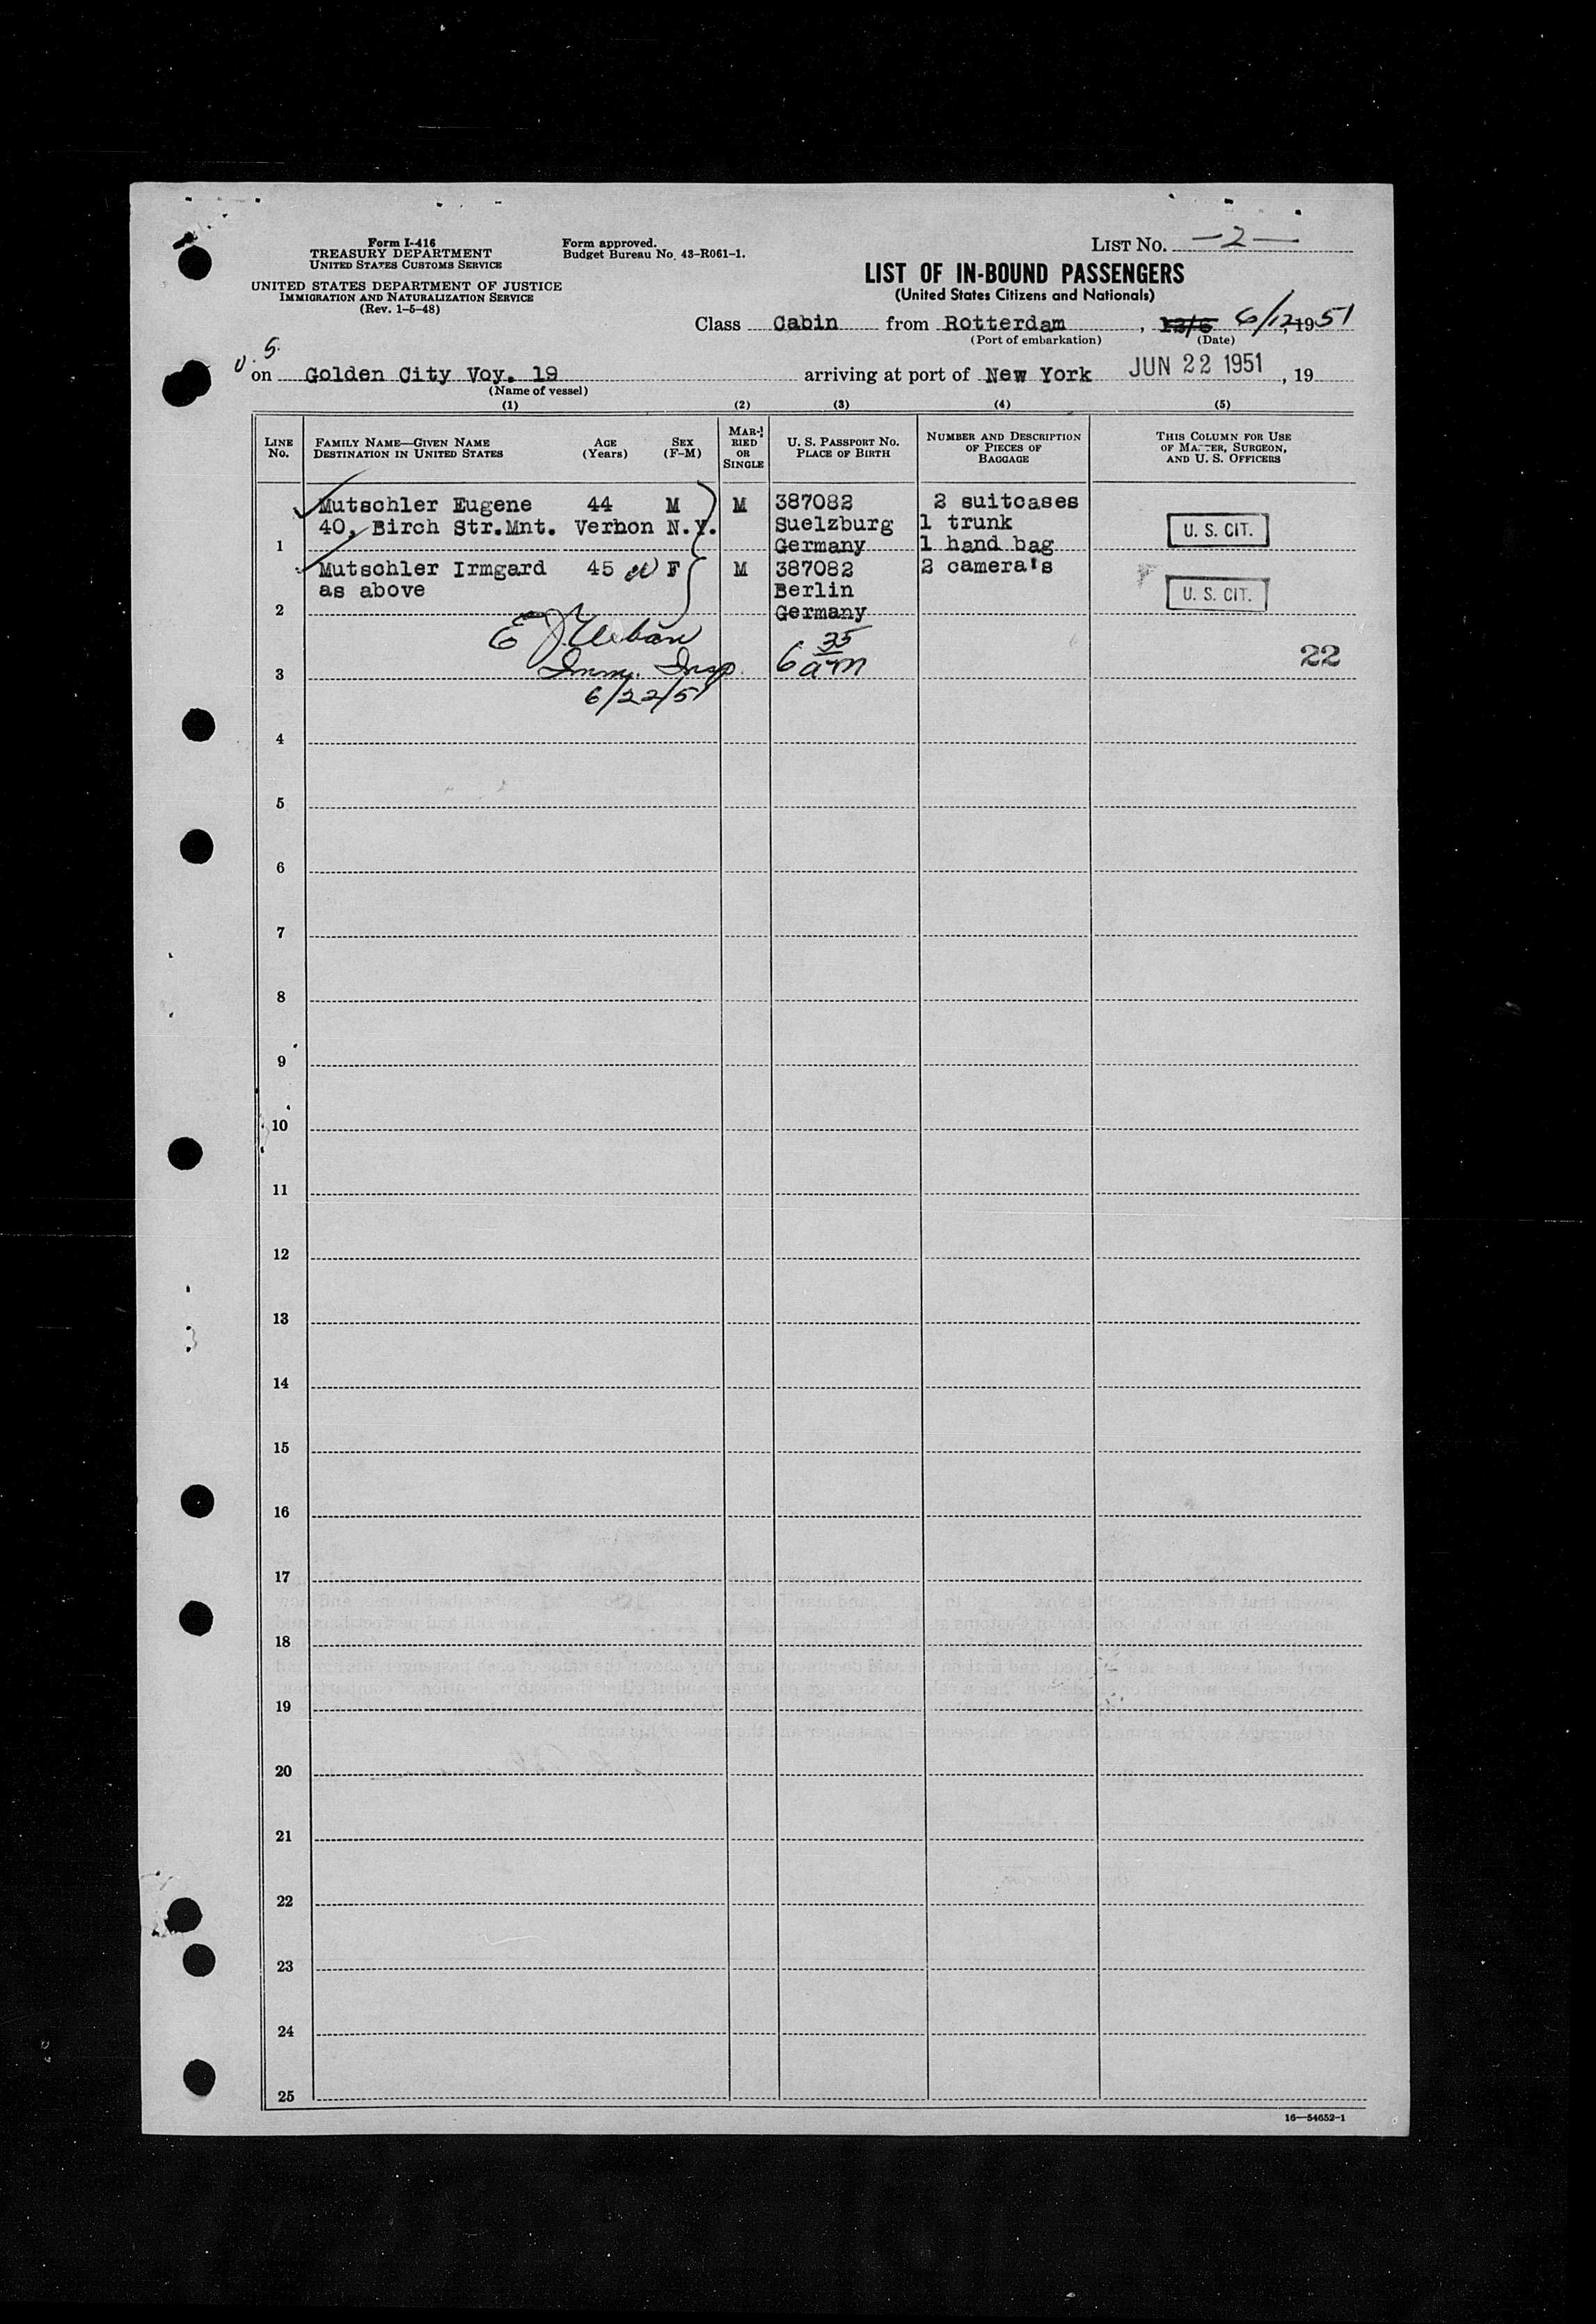 Form I-416
TREASURY DEPARTMENT
UNITED STATES CUSTOMS SERVICE
UNITED STATES DEPARTMENT OF JUSTICE
IMMIGRATION AND NATURALIZATION SERVICE
(Rev. 1-5-48)
Form approved.
Budget Bureau No. 43-R061-1.
LIST NO. —2—
LIST OF IN-BOUND PASSENGERS
(United States Citizens and Nationals)
Class Cabin from Rotterdam , 12/6 6/12, 1951
(Port of embarkation) (Date)
on Golden City Voy. 19 arriving at port of New York JUN 22 1951 , 19
(Name of vessel)
(1) (2) (3) (4) (5)
LINE No. FAMILY NAME—GIVEN NAME DESTINATION IN UNITED STATES AGE (Years) SEX (F-M) MARRIED OR SINGLE U. S. PASSPORT NO. PLACE OF BIRTH NUMBER AND DESCRIPTION OF PIECES OF BAGGAGE THIS COLUMN FOR USE OF MASTER, SURGEON, AND U. S. OFFICERS
Mutschler Eugene 44 M M 387082 2 suitcases
40, Birch Str.Mnt. Vernon N.Y. Suelzburg 1 trunk U. S. CIT.
1 Germany 1 hand bag
Mutschler Irmgard 45 F M 387082 2 camera's
as above Berlin U. S. CIT.
2 Germany
E J Urban 6 35 am 22
3 Imm. Insp.
6/22/51
4
5
6
7
8
9
10
11
12
13
14
15
16
17
18
19
20
21
22
23
24
25
16—54652-1